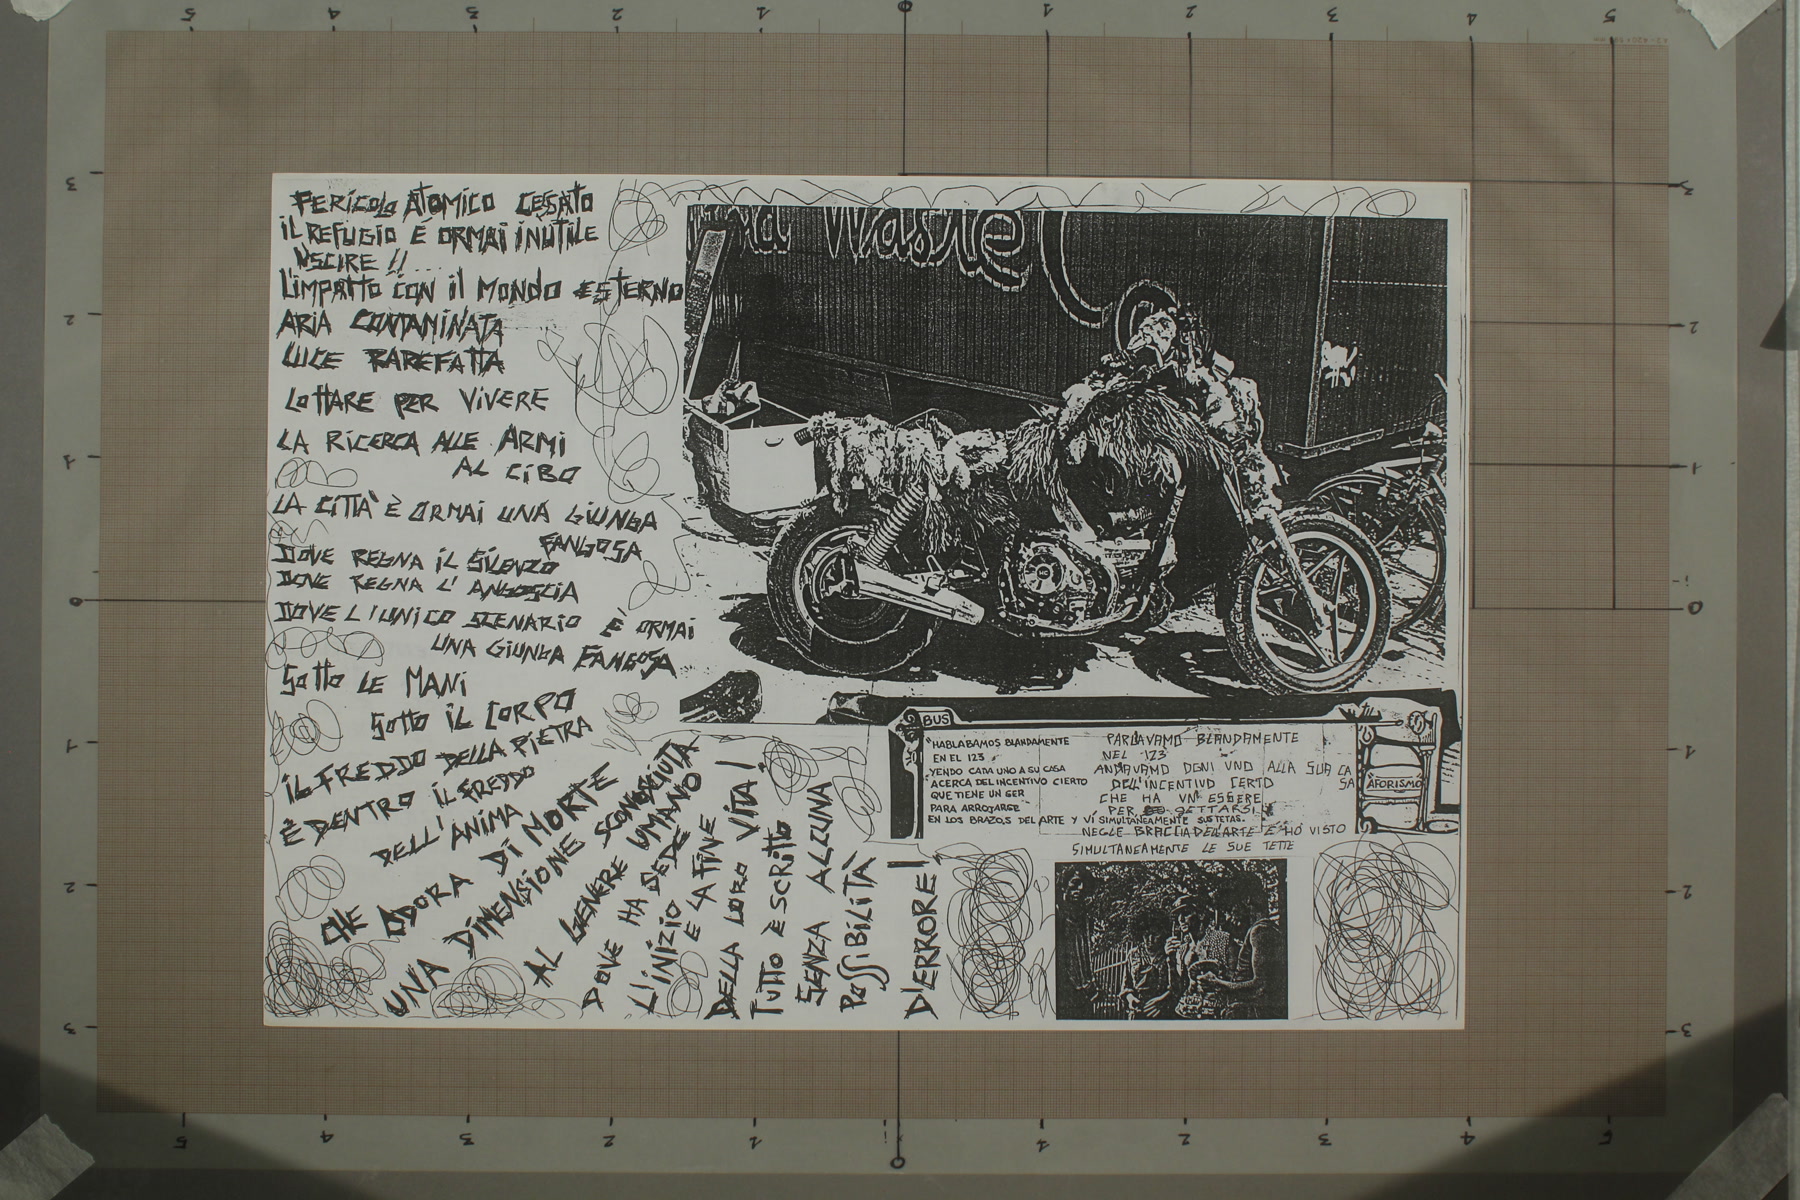 PERICOLO ATOMICO CESSATO
IL REFUGIO E ORMAI INUTILE
USCIRE !!
L'IMPATTO CON IL MONDO ESTERNO
ARIA CONTAMINATA
LUCE RAREFATTA
LOTTARE PER VIVERE
LA RICERCA ALLE ARMI
AL CIBO
LA CITTA' È ORMAI UNA GIUNGA
FANGOSA
DOVE REGNA IL SILENZO
DOVE REGNA L'ANGOSCIA
DOVE L'UNICO SCENARIO E' ORMAI
UNA GIUNGA FANGOSA
SOTTO LE MANI
SOTTO IL CORPO
IL FREDDO DELLA PIETRA
È DENTRO IL FREDDO
DELL'ANIMA
CHE ODORA DI MORTE
UNA DIMENSIONE SCONOSCIUTA
AL GENERE UMANO
DOVE HA SEDE
L'INIZIO E LA FINE
DELLA LORO VITA!
TUTTO È SCRITTO
SENZA ALCUNA
POSSIBILITÀ
D'ERRORE!
Waste
BUS
"HABLABAMOS BLANDAMENTE
EN EL 123
YENDO CADA UNO A SU CASA
ACERCA DEL INCENTIVO CIERTO
QUE TIENE UN SER
PARA ARROJARSE
EN LOS BRAZOS DEL ARTE Y VÍ SIMULTANEAMENTE SUS TETAS.
PARLAVAMO BLANDAMENTE
NEL 123
ANDAVAMO OGNI UNO ALLA SUA CA
SA
DELL'INCENTIVO CERTO
CHE HA UN ESSERE
PER GETTARSI
NEGLE BRACCIA DELL'ARTE E HO VISTO
SIMULTANEAMENTE LE SUE TETTE
AFORISMO
5 4 3 2 1 0 1 2 3 4 5
3
2
1
0
1
2
3
3
2
1
0
1
2
3
5 4 3 2 1 0 1 2 3 4 5